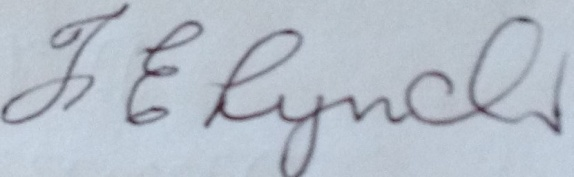 J E Lynch